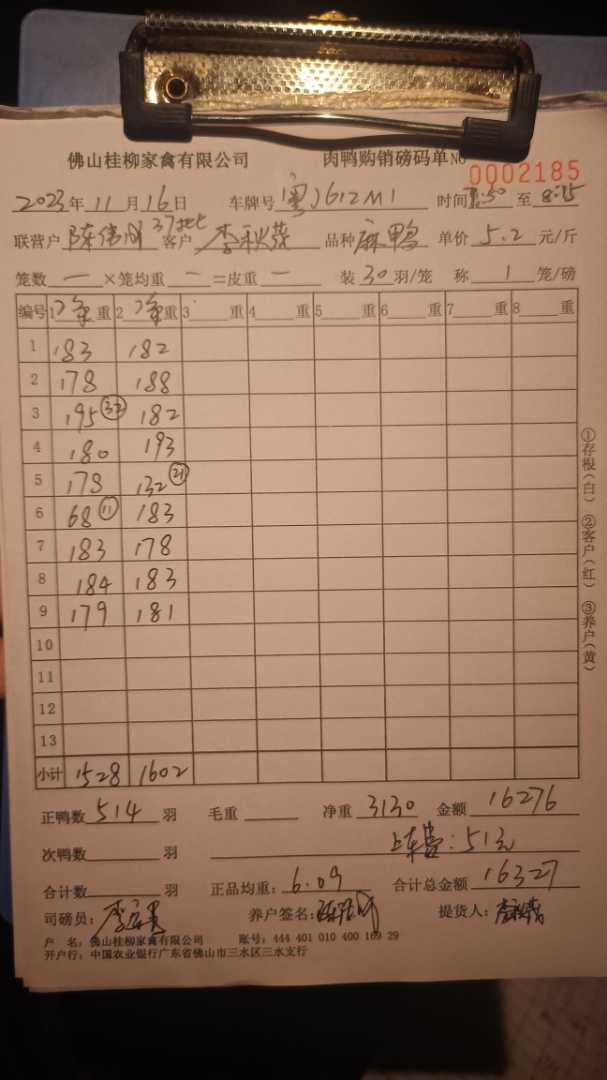 佛山桂柳家禽有限公司 肉鸭购销磅码单 NO 0002185
2023年11月16日 车牌号 粤J612M1 时间 :50 至 8:15
联营户 陈伟成 37批 客户 李秋茂 品种 麻鸭 单价 5.2 元/斤
笼数 一 ×笼均重 一 =皮重 一 装 30 羽/笼 称 1 笼/磅
编号 1 净 重 2 净 重 3 重 4 重 5 重 6 重 7 重 8 重
1 183 182
2 178 188
3 195 32 182
4 180 193
5 178 132 21
6 68 11 183
7 183 178
8 184 183
9 179 181
10
11
12
13
小计 1528 1602
①存根(白) ②客户(红) ③养户(黄)
正鸭数 514 羽 毛重 净重 3130 金额 16276
次鸭数 羽 上车费:51元
合计数 羽 正品均重: 6.09 合计总金额 16327
司磅员: 养户签名: 提货人:
户 名: 佛山桂柳家禽有限公司 账号: 444 401 010 400 169 29
开户行: 中国农业银行广东省佛山市三水区三水支行